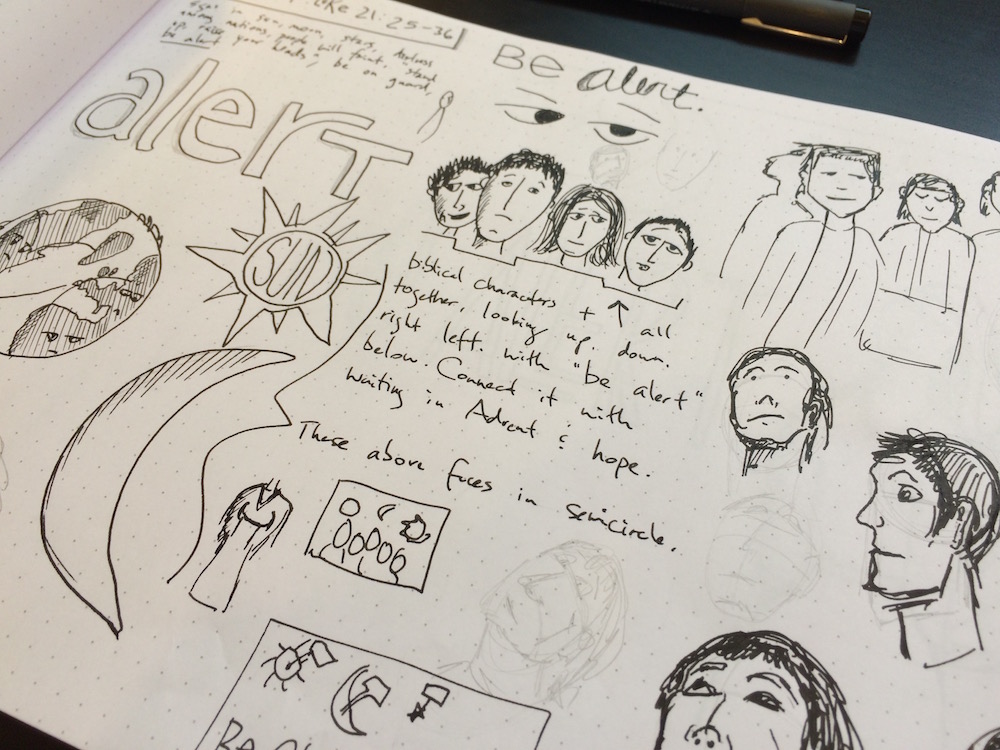 Luke 21:25-36
in sun, moon, stars,
nations, people will faint. "stand
up, raise your heads", be on guard,
be alert
Be alert.
alert
SUN
biblical characters + ↑ all
together, looking up, down,
right left. with "be alert"
below. Connect it with
waiting in Advent & hope.
These above faces in semicircle.